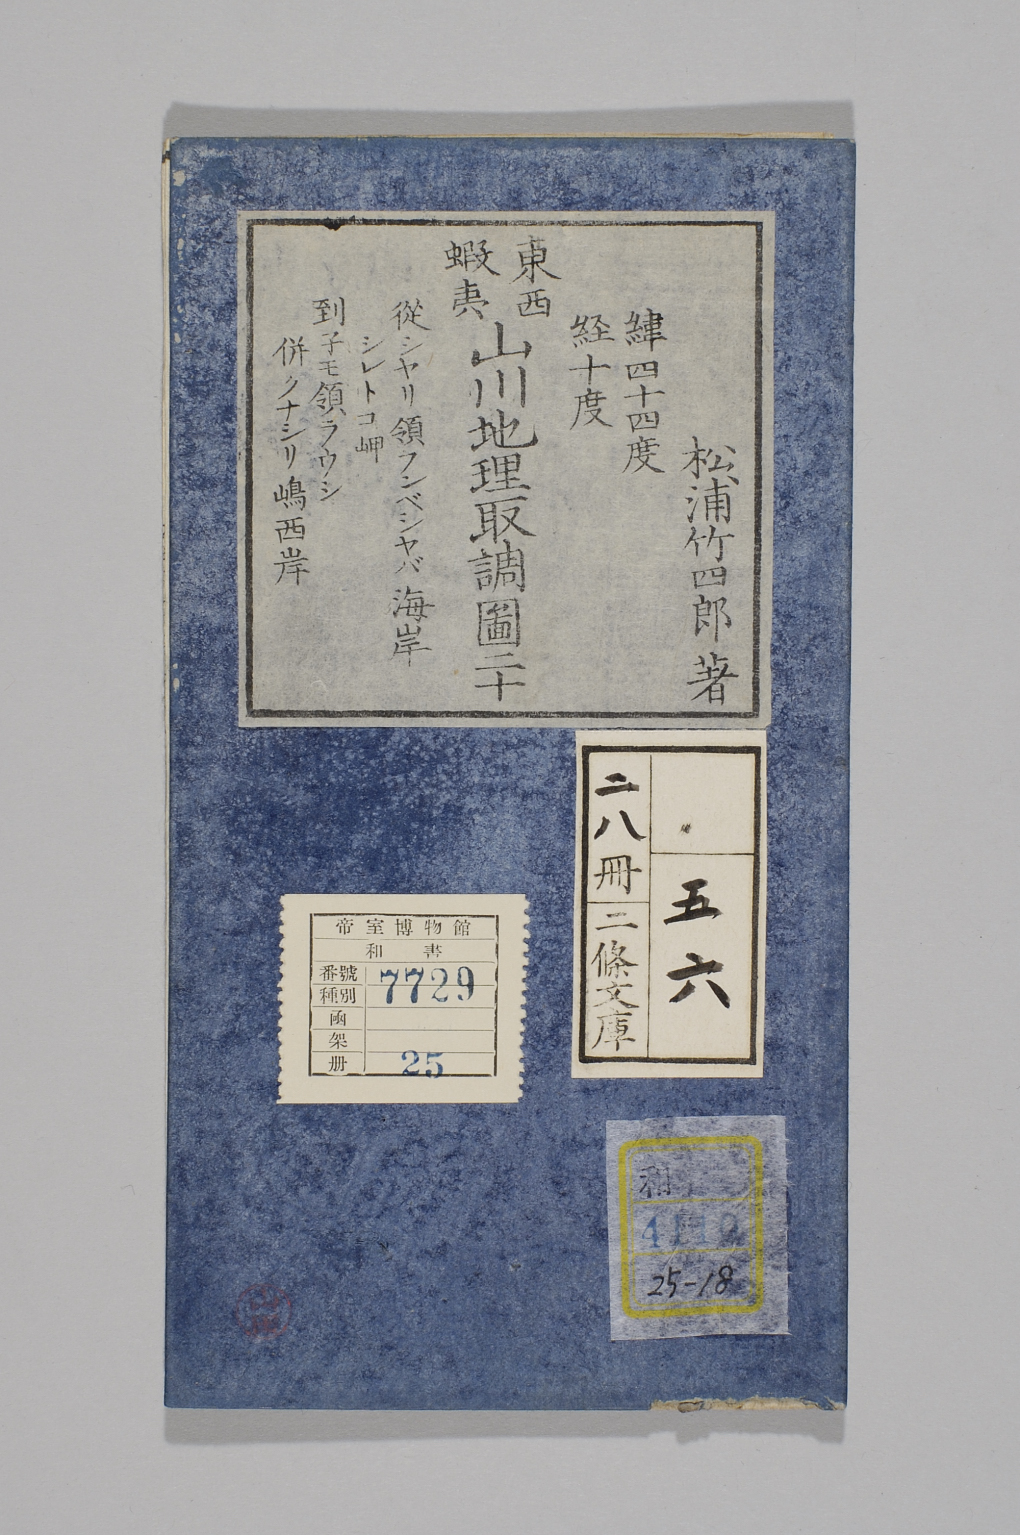 松浦竹四郎著
緯四十四度
経十度
東西
蝦夷
山川地理取調圖二十
從シヤリ領フンベシヤバ海岸
シレトコ岬
到子モ領ラウシ
併クナシリ嶋西岸
五六
二八冊
二條文庫
帝室博物館
和書
番號 7729
種別
函
架
册 25
和
25-18